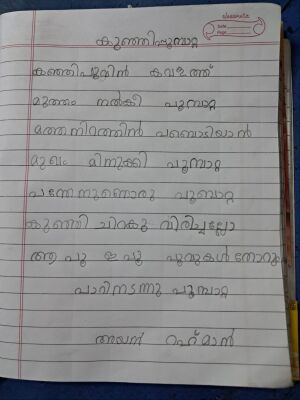 classmate
Date
Page
കുഞ്ഞിപ്പൂമ്പാറ്റ
കുഞ്ഞിപൂവിൻ കവിളത്ത്
മുത്തം നൽകീ പൂമ്പാറ്റ
മത്തനിറത്തിൻ പബൊടിയാൽ
മുഖം മിനുക്കി പൂമ്പാറ്റ
പൂബാറ്റ
കുഞ്ഞി ചിറകു വിരിച്ചല്ലോ
ആ പൂ ഇ പൂ പൂവുകൾ തോറും
പാറിനടന്നു പൂമ്പാറ്റ
അയൻ റഹ്മാൻ